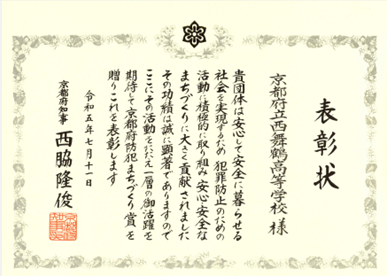 表彰状
京都府立西舞鶴高等学校 様
貴団体は安心して安全に暮らせる
社会を実現するため犯罪防止のための
活動に積極的に取り組み安心・安全な
まちづくりに大きく貢献されました
その功績は誠に顕著でありますので
ここにその活動をたたえ一層の御活躍を
期待して京都府防犯まちづくり賞を
贈りこれを表彰します
令和五年七月十一日
京都府知事 西脇隆俊